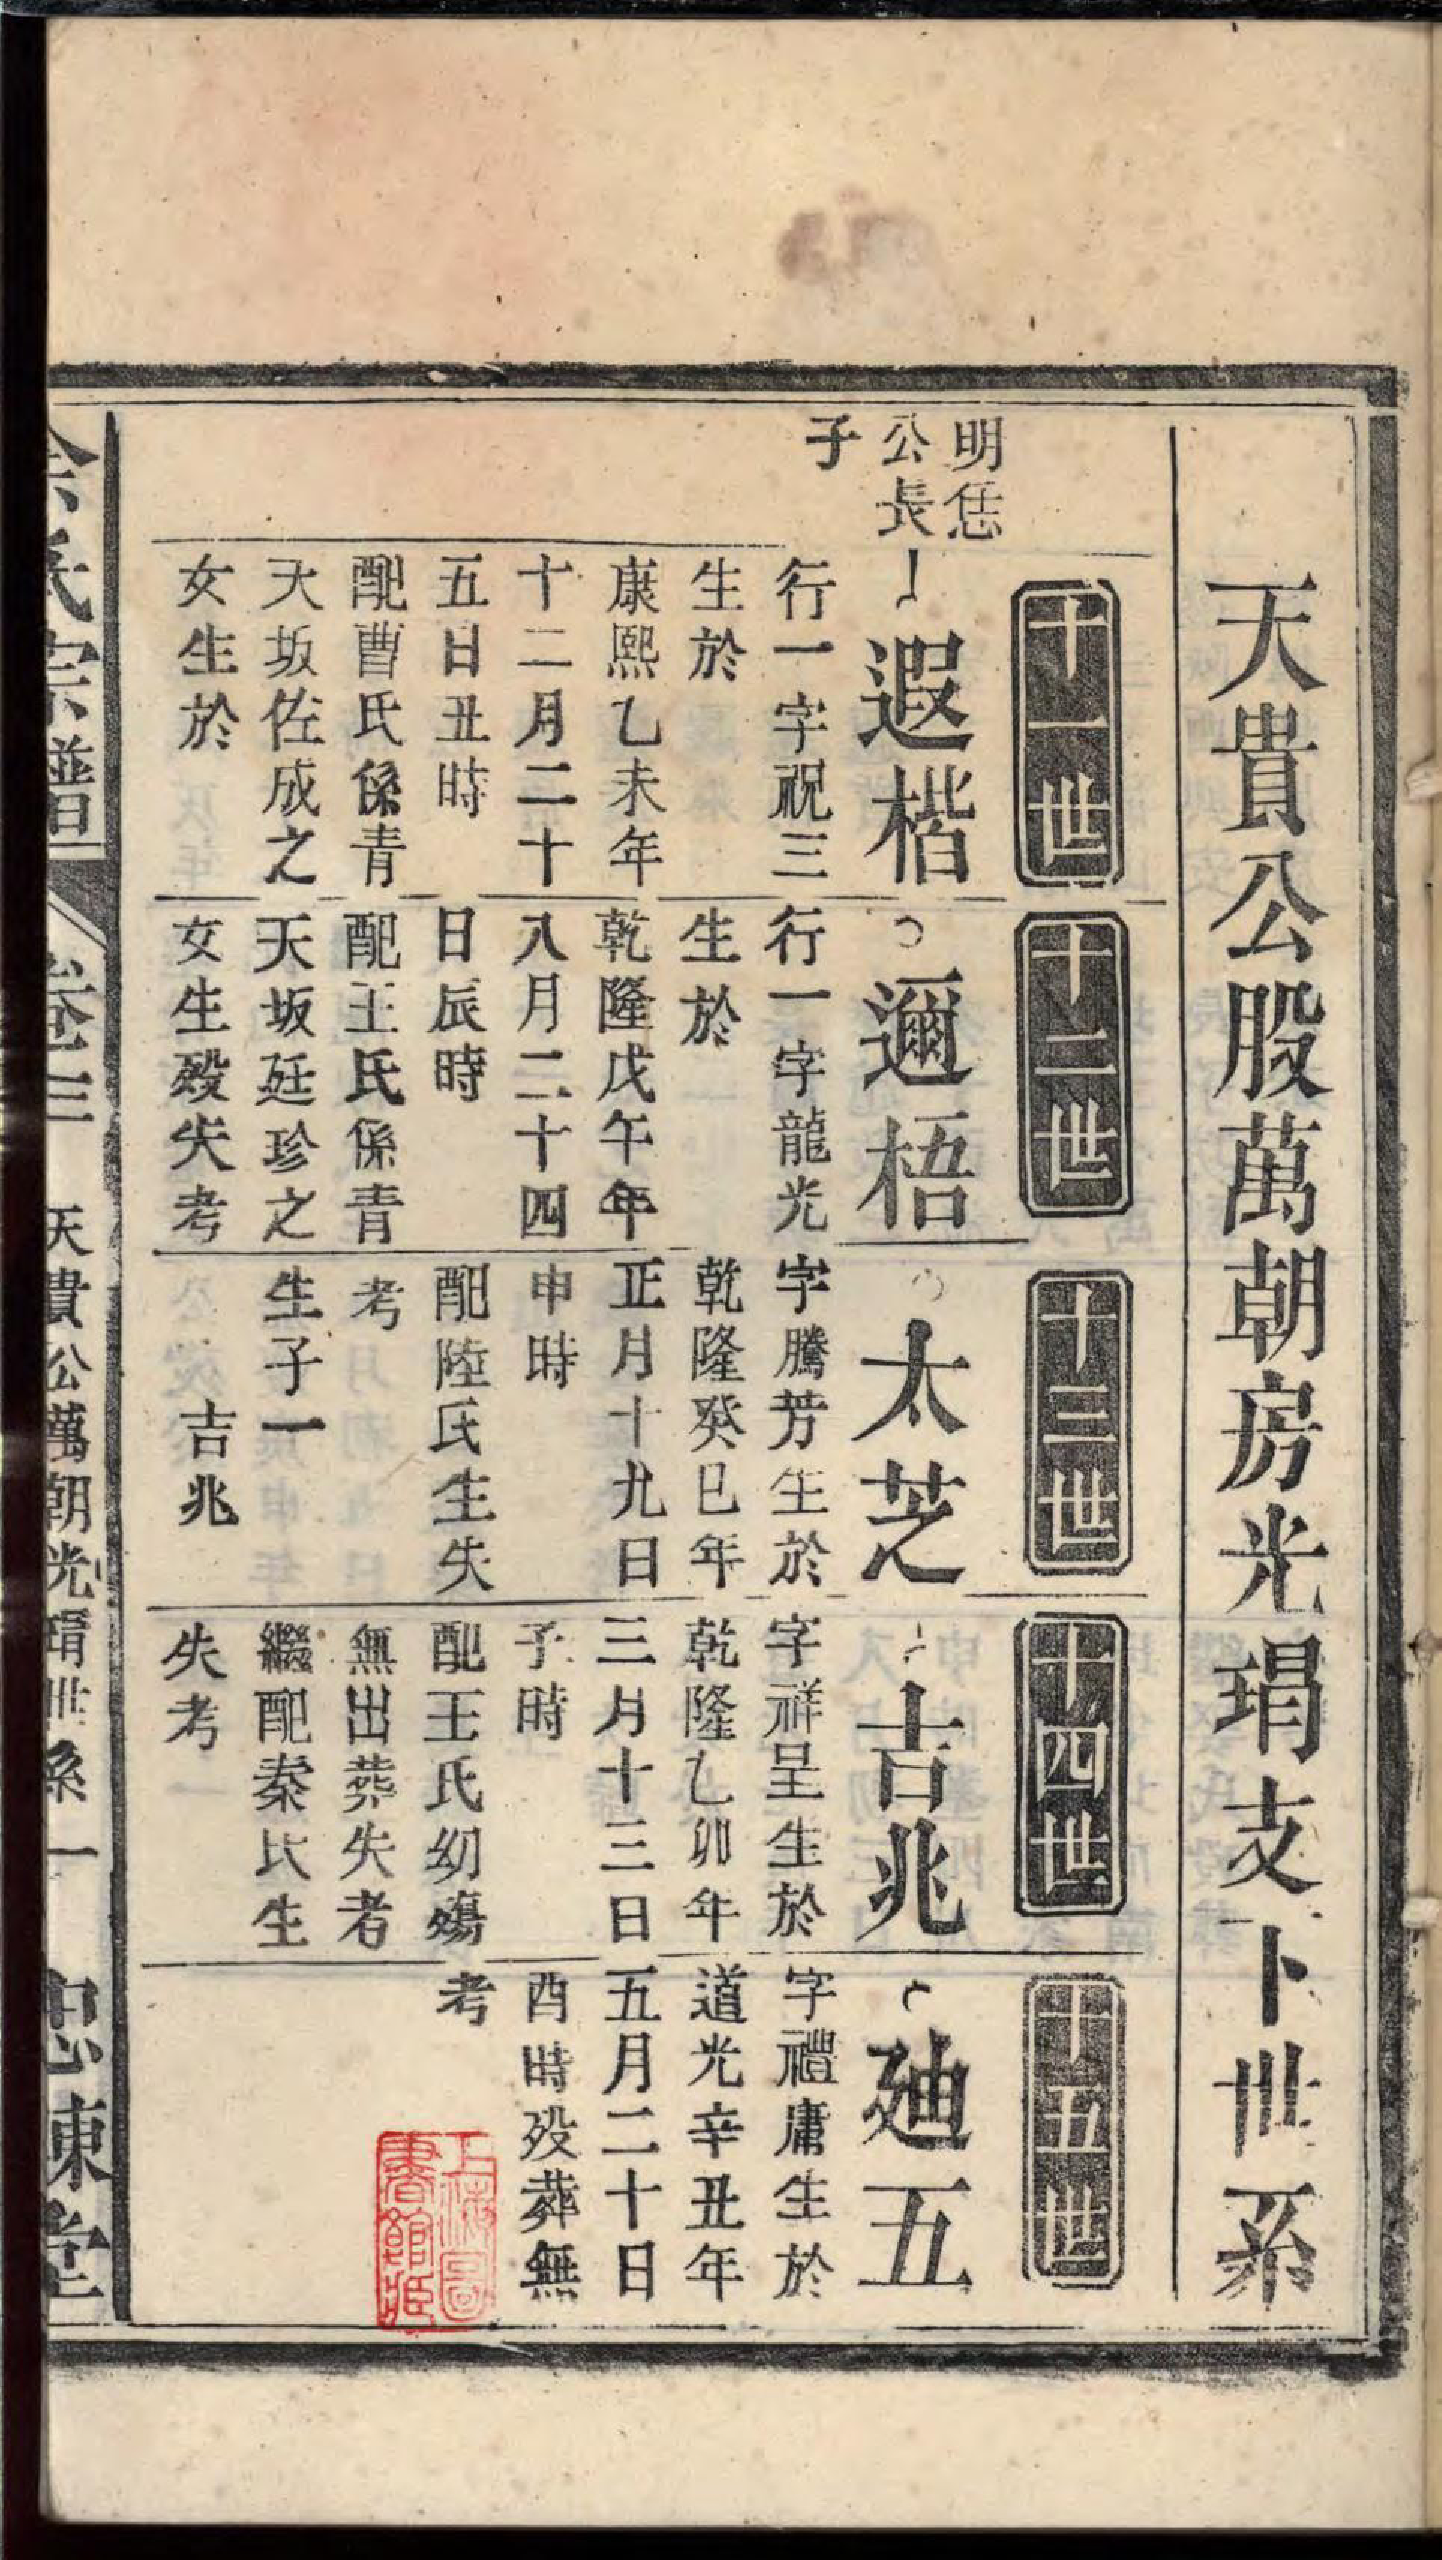 天貴公股萬朝房光瑁支卜世系
十一世
十二世
十三世
十四世
十五世
明恁
公長
子
遐楷
行一字祝三
生於
康熙乙未年
十二月二十
五日丑時
配曹氏係青
天坂佐成之
女生於
邇梧
行一字龍光
生於
乾隆戊午年
八月二十四
日辰時
配王氏係青
天坂廷珍之
女生歿失考
太芝
字騰芳生於
乾隆癸巳年
正月十九日
申時
配陸氏生失
考
生子一
吉兆
吉兆
字祥呈生於
乾隆乙卯年
三月十三日
子時
配王氏幼殤
無出葬失考
繼配秦氏生
失考
廸五
字禮庸生於
道光辛丑年
五月二十日
酉時歿葬無
考
余氏宗譜
卷三
天貴公萬朝光瑁世系一
忠陳堂
上海圖
書館藏